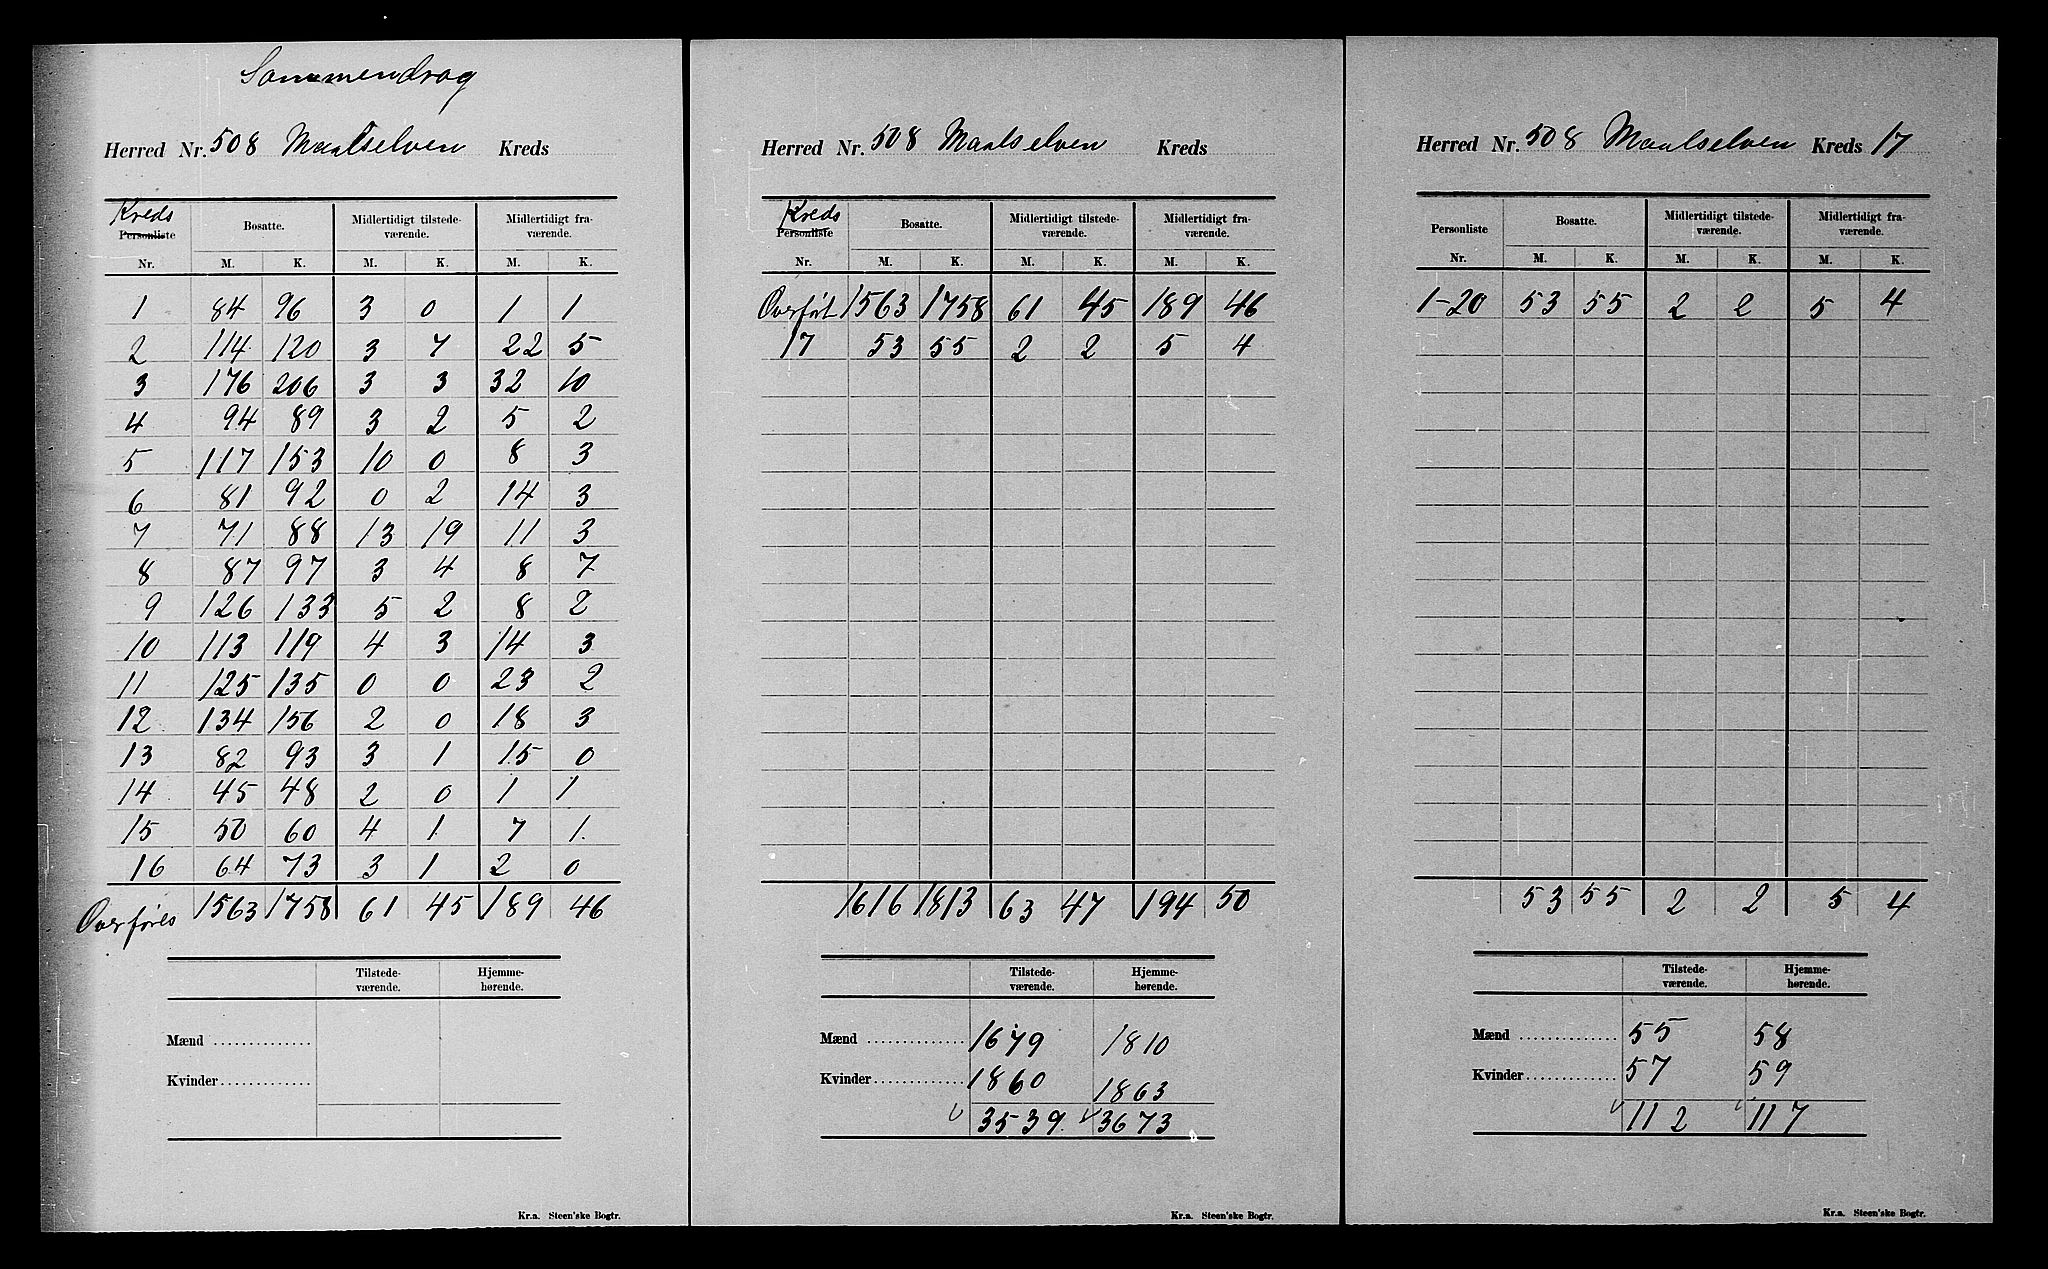 Sammendrag
Herred Nr. 508 Maalselven Kreds
Kreds
Personliste Bosatte. Midlertidigt tilstede-værende. Midlertidigt fra-værende.
Nr. M. K. M. K. M. K.
1 84 96 3 0 1 1
2 114 120 3 7 22 5
3 176 206 3 3 32 10
4 94 89 3 2 5 2
5 117 153 10 0 8 3
6 81 92 0 2 14 3
7 71 88 13 19 11 3
8 87 97 3 4 8 7
9 126 133 5 2 8 2
10 113 119 4 3 14 3
11 125 135 0 0 23 2
12 134 156 2 0 18 3
13 82 93 3 1 15 0
14 45 48 2 0 1 1
15 50 60 4 1 7 1
16 64 73 3 1 2 0
Overføres 1563 1758 61 45 189 46
Tilstede-værende. Hjemme-hørende.
Mænd
Kvinder
Kr.a. Steen'ske Bogtr.
Herred Nr. 508 Maalselven Kreds
Kreds
Personliste Bosatte. Midlertidigt tilstede-værende. Midlertidigt fra-værende.
Nr. M. K. M. K. M. K.
Overført 1563 1758 61 45 189 46
17 53 55 2 2 5 4
1616 1813 63 47 194 50
Tilstede-værende. Hjemme-hørende.
Mænd 1679 1810
Kvinder 1860 1863
3539 3673
Kr.a. Steen'ske Bogtr.
Herred Nr. 508 Maalselven Kreds 17
Personliste Bosatte. Midlertidigt tilstede-værende. Midlertidigt fra-værende.
Nr. M. K. M. K. M. K.
1-20 53 55 2 2 5 4
53 55 2 2 5 4
Tilstede-værende. Hjemme-hørende.
Mænd 55 58
Kvinder 57 59
112 117
Kr.a. Steen'ske Bogtr.